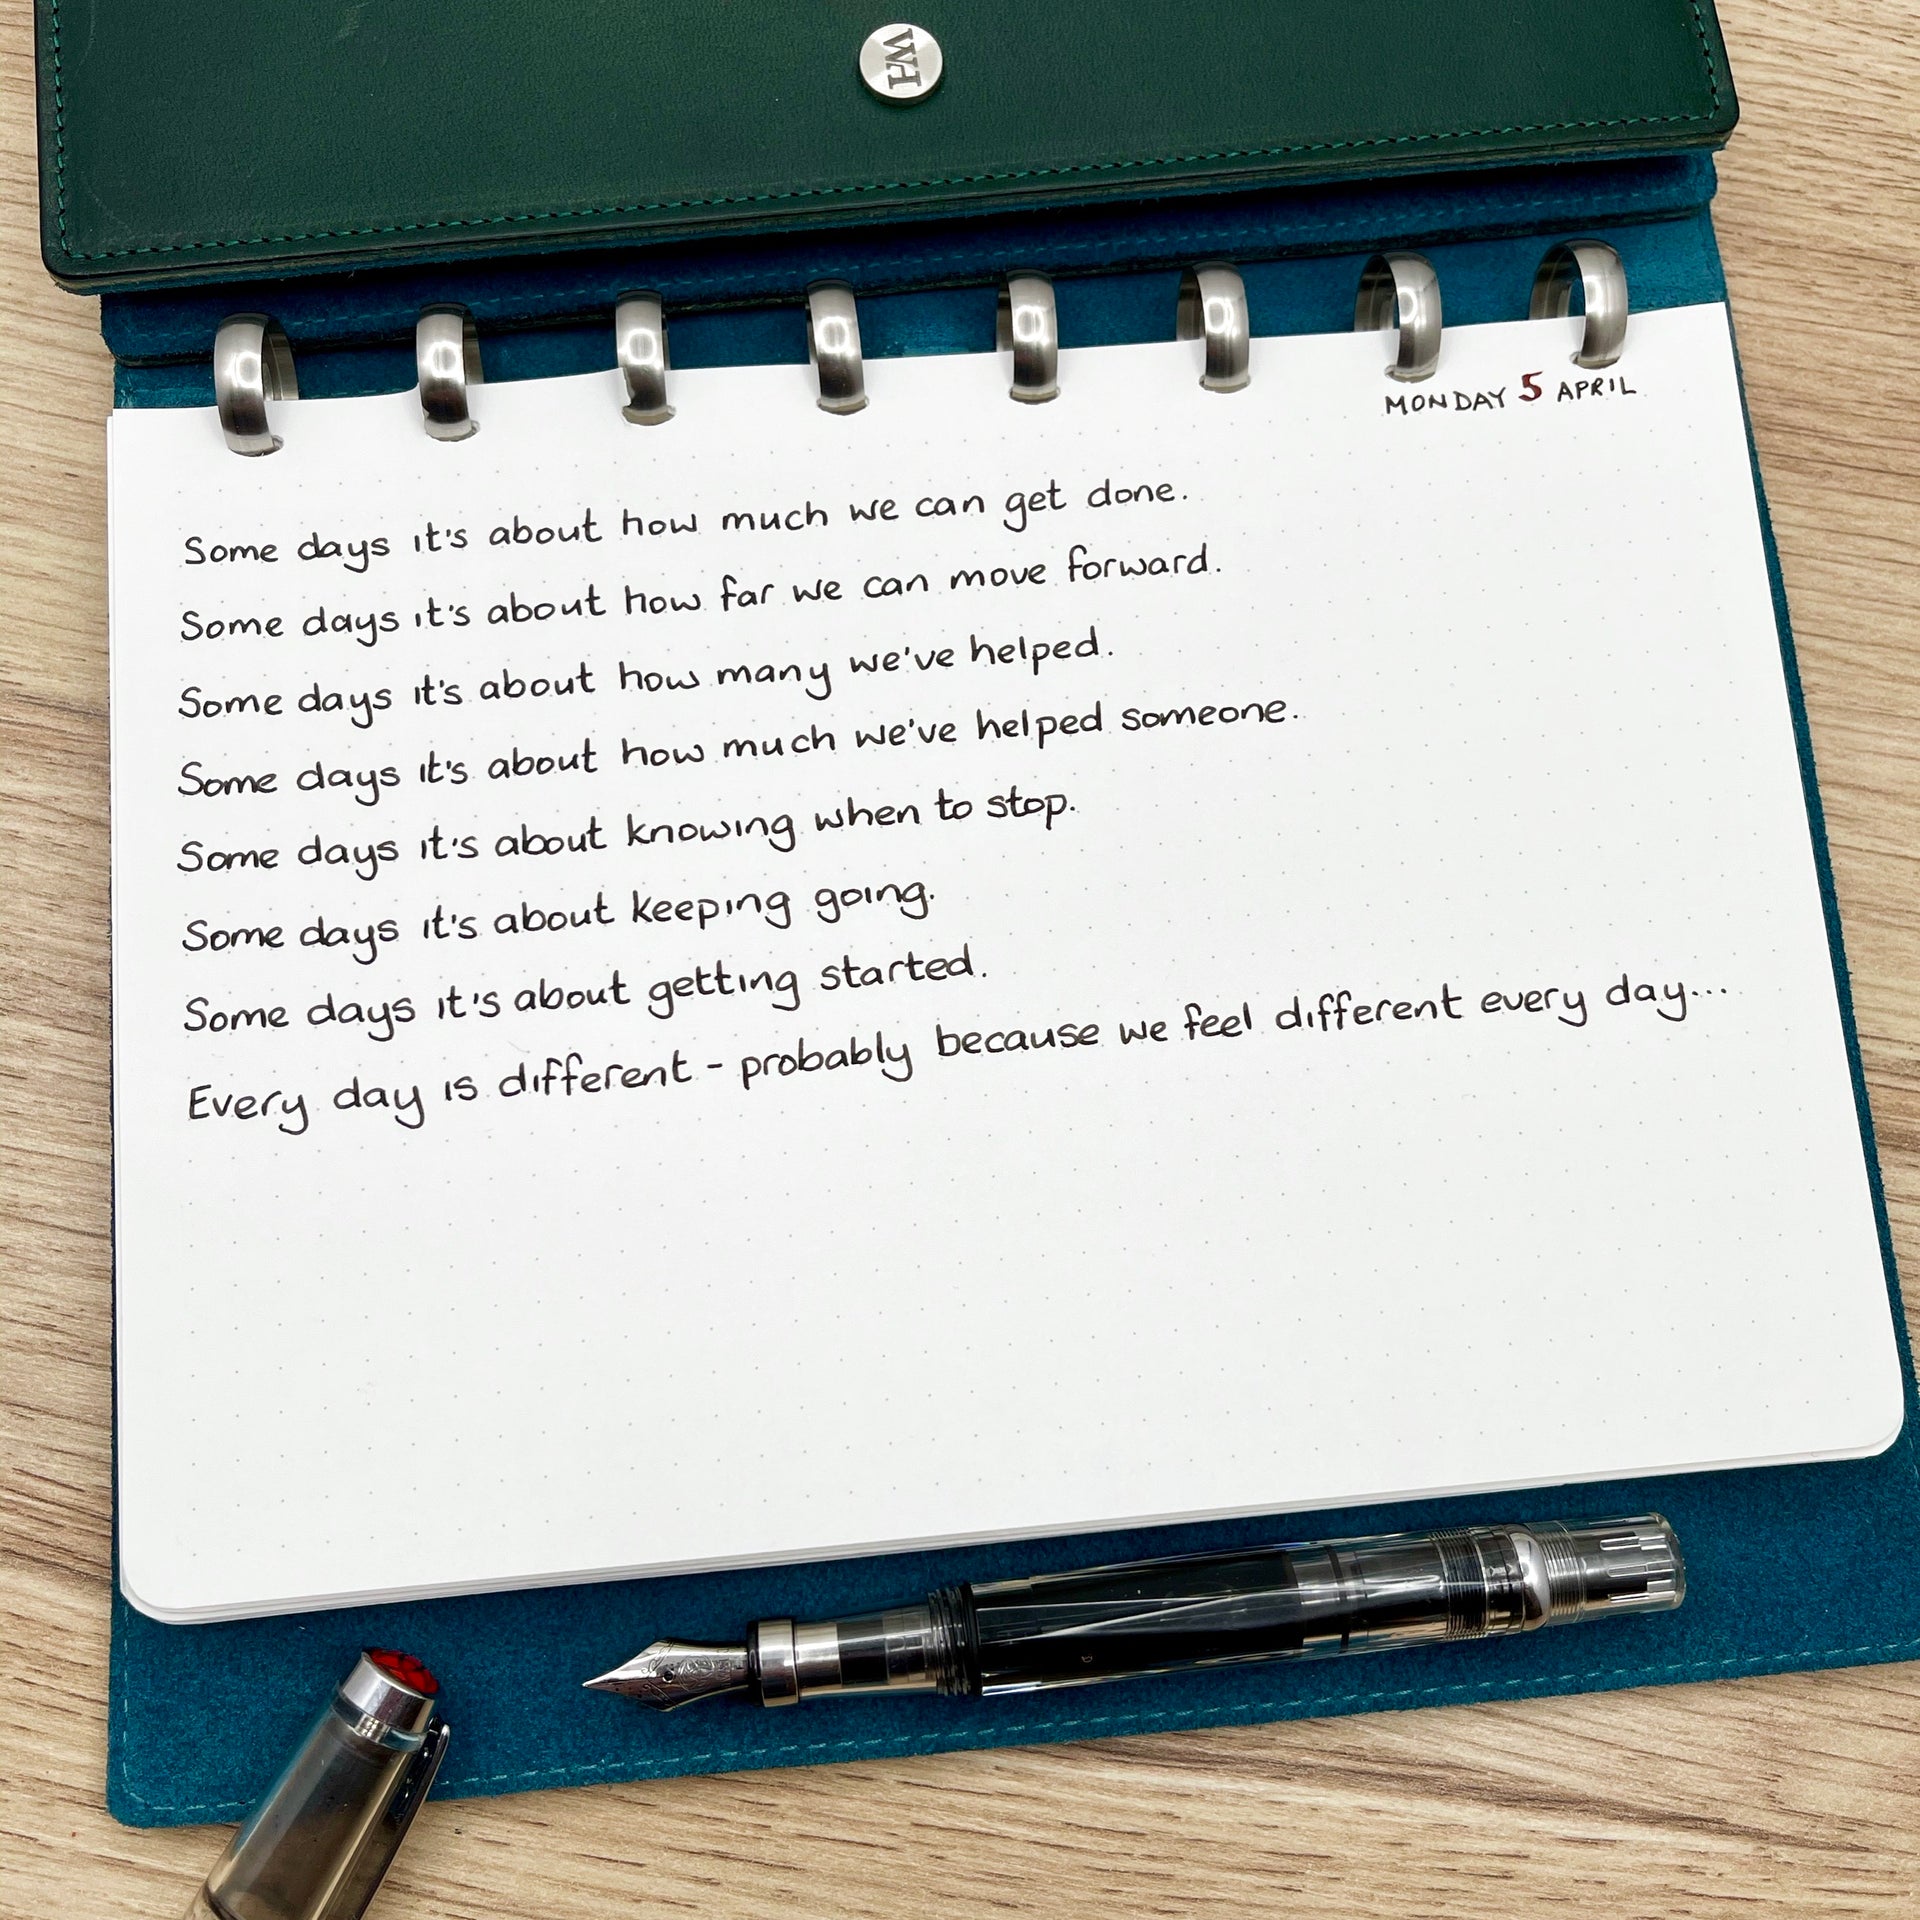 WH
MONDAY 5 APRIL
Some days it's about how much we can get done.
Some days it's about how far we can move forward.
Some days it's about how many we've helped.
Some days it's about how much we've helped someone.
Some days it's about knowing when to stop.
Some days it's about keeping going.
Some days it's about getting started.
Every day is different - probably because we feel different every day...